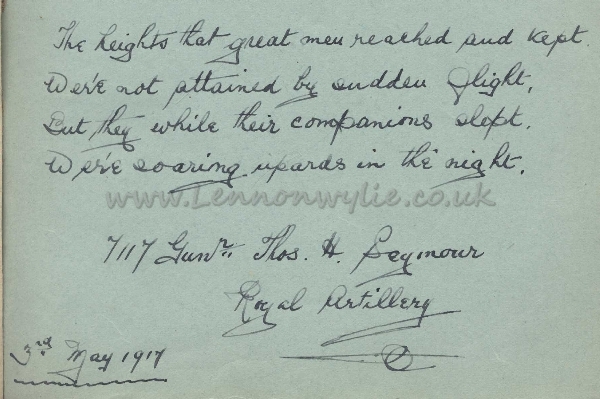 The heights that great men reached and kept.
Were not attained by sudden flight,
But they while their companions slept.
Were soaring upards in the night.
www.Lennonwylie.co.uk
7117 Gunr. Thos. H. Seymour
Royal Artillery
3rd May 1917